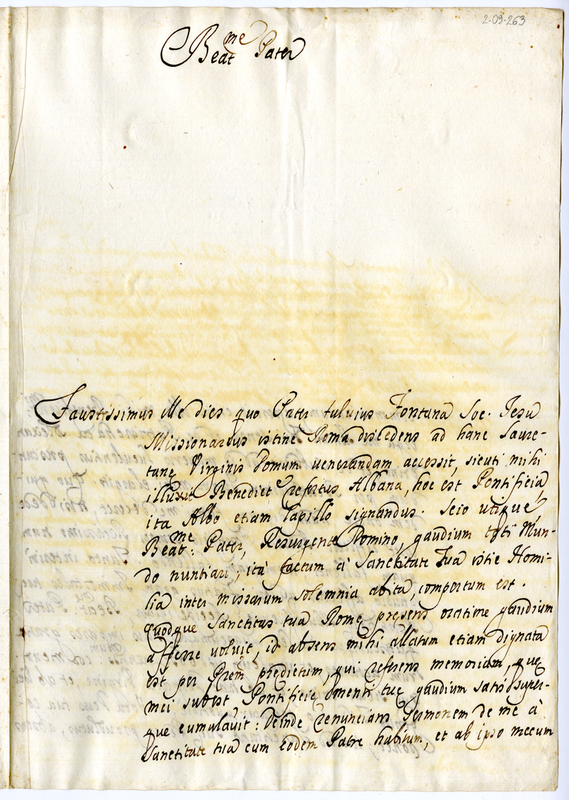 2-09-263
Beat.me Pater
Faustissimus ille dies quo Pater Fulvius Fontana Soc. Jesu
Missionarius istinc Roma discedens ad hanc Laure-
tanę Virginis domum venerandam accessit, sicuti mihi
illuxit Benedict refertus Albana, hoc est Pontificia
ita Albo etiam lapillo signandus. Scio utique
Beat.me Pater, Resurgente Domino, gaudium toti Mun-
do nuntiari, ità factum à Sanctitate Tua istic Homi-
lia inter missarum solemnia habita, compertum est.
Quodque Sanctitas tua Romę pręsens oratione gaudium
afferre voluit, id absens mihi allatum etiam dignata
est per Prem prędictum, qui referens memoriam, quę
mei subest Pontificię menti tuę gaudium satis super-
que cumulavit: Deinde renuncians sermonem de me à
Sanctitate tua cum eodem Patre habitum, et ab ipso mecum